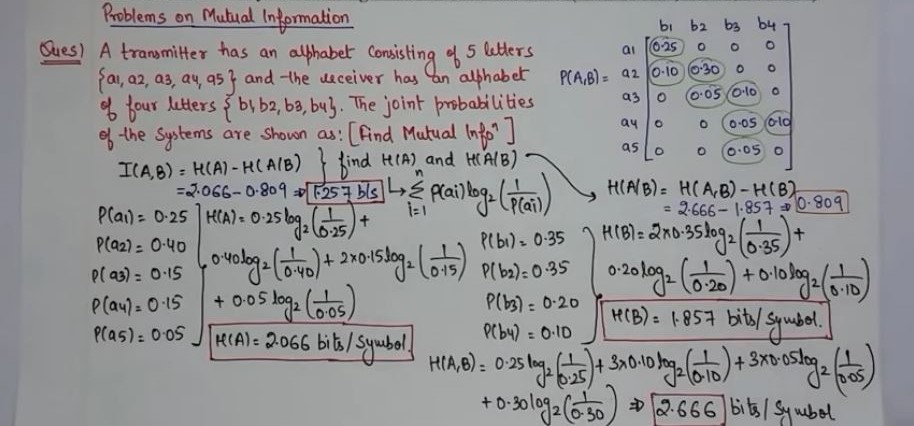 Problems on Mutual Information
Ques) A transmitter has an alphabet consisting of 5 letters
{a1, a2, a3, a4, a5} and the receiver has an alphabet
of four letters {b1, b2, b3, b4}. The joint probabilities
of the systems are shown as: [Find Mutual Infoⁿ]
b1 b2 b3 b4
a1 0.25 0 0 0
P(A,B)= a2 0.10 0.30 0 0
a3 0 0.05 0.10 0
a4 0 0 0.05 0.10
a5 0 0 0.05 0
I(A,B) = H(A) - H(A/B) } find H(A) and H(A/B)
= 2.066 - 0.809 ⇒ 1.257 b/s
n Σ i=1 P(ai) log₂ (1/P(ai))
H(A/B) = H(A,B) - H(B)
= 2.666 - 1.857 ⇒ 0.809
P(a1) = 0.25
P(a2) = 0.40
P(a3) = 0.15
P(a4) = 0.15
P(a5) = 0.05
H(A) = 0.25 log₂ (1/0.25) +
0.40 log₂ (1/0.40) + 2x0.15 log₂ (1/0.15)
+ 0.05 log₂ (1/0.05)
H(A) = 2.066 bits/Symbol.
P(b1) = 0.35
P(b2) = 0.35
P(b3) = 0.20
P(b4) = 0.10
H(B) = 2x0.35 log₂ (1/0.35) +
0.20 log₂ (1/0.20) + 0.10 log₂ (1/0.10)
H(B) = 1.857 bits/Symbol.
H(A,B) = 0.25 log₂ (1/0.25) + 3x0.10 log₂ (1/0.10) + 3x0.05 log₂ (1/0.05)
+ 0.30 log₂ (1/0.30) ⇒ 2.666 bits/Symbol